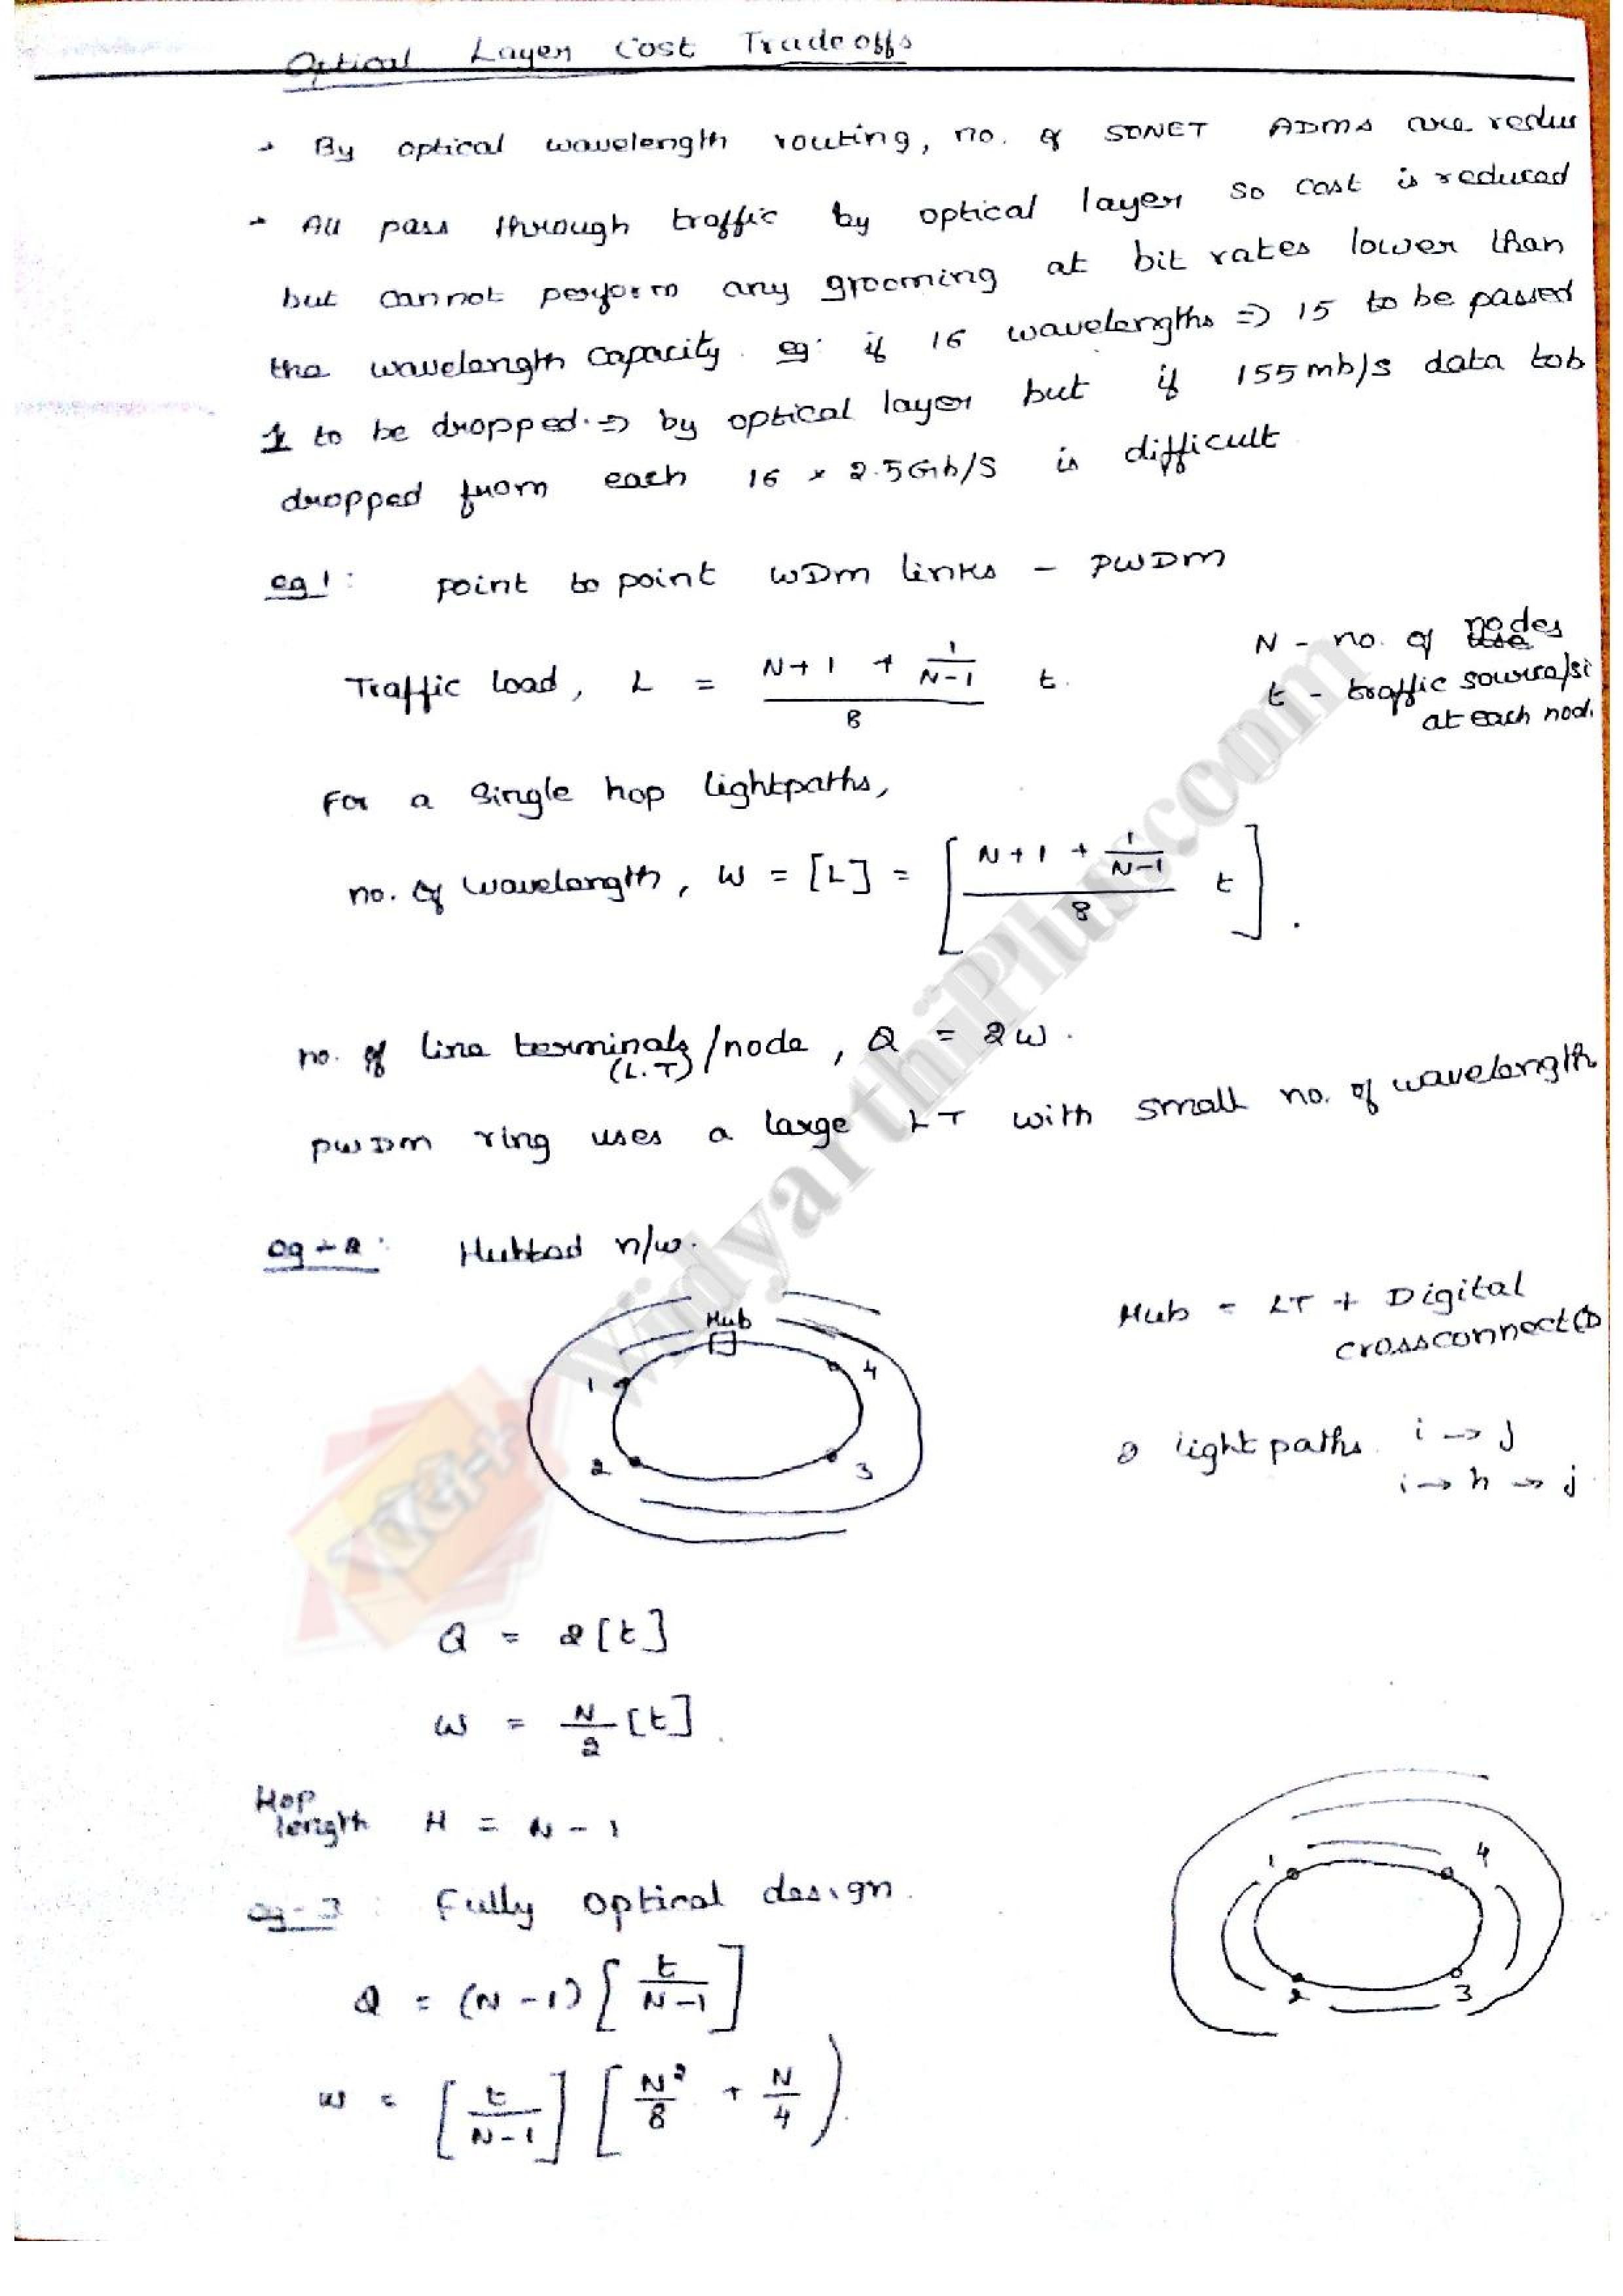 Optical Layer Cost Tradeoffs
→ By optical wavelength routing, no. of SONET ADMs are redu
→ All pass through traffic by optical layer so cost is reduced
but cannot perform any grooming at bit rates lower than
the wavelength capacity. eg: if 16 wavelengths => 15 to be passed
1 to be dropped. => by optical layer but if 155mb/s data tob
dropped from each 16 x 2.5Gb/s is difficult
eg 1: point to point WDM links - PWDM
Traffic load, L = (N+1 + 1/(N-1))/8 t.
N - no. of nodes
t - traffic source/si
at each nod.
For a single hop lightpaths,
no. of wavelength, W = [L] = [(N+1 + 1/(N-1))/8 t].
no. of line terminals/node, Q = 2W.
(L.T)
PWDM ring uses a large LT with small no. of wavelength
eg-2: Hubbed n/w.
Hub
1
4
2
3
Hub = LT + Digital
crossconnect(D
2 lightpaths. i → j
i → h → j
Q = 2[t]
W = N/2 [t].
Hop
length H = N - 1
eg-3: Fully optical design.
1
4
2
3
Q = (N-1) [t/(N-1)]
W = [t/(N-1)] [N²/8 + N/4).
VidyarthiPlus.com